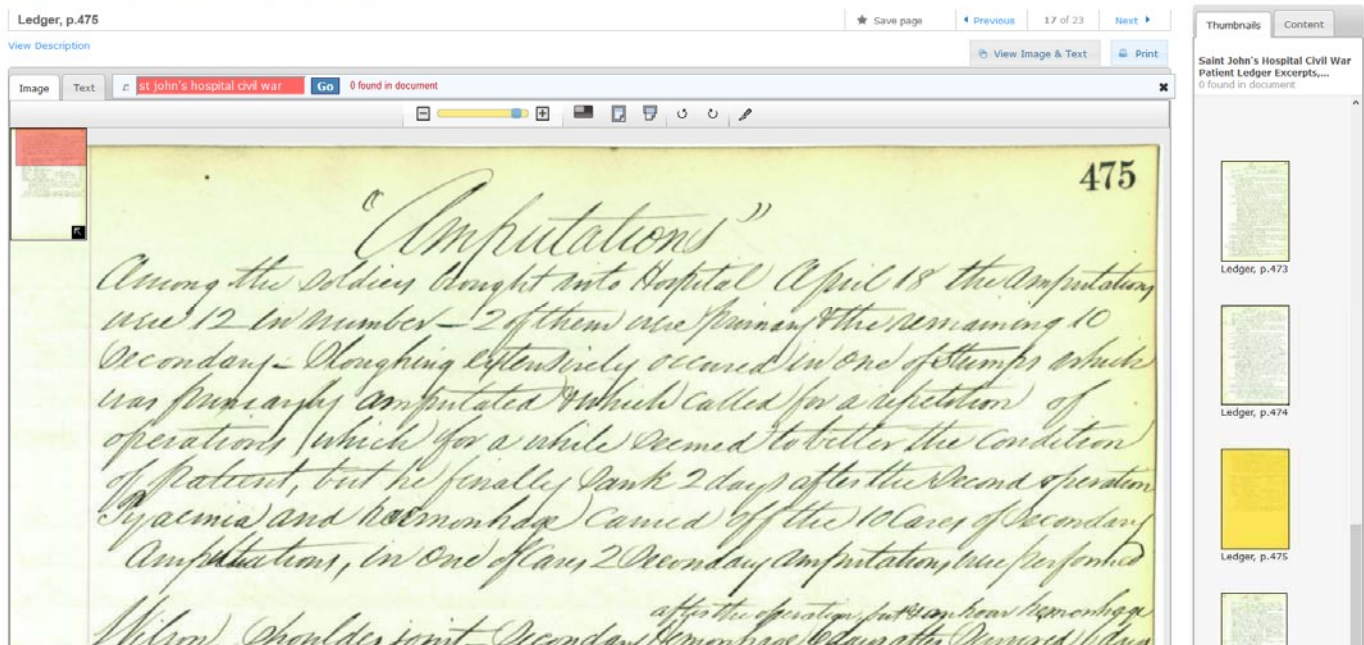 Ledger, p.475
Save page
Previous
17 of 23
Next
View Description
View Image & Text
Print
Image
Text
st john's hospital civil war
Go
0 found in document
475
"Amputations"
Among the soldiers brought into Hospital April 18 the Amputations
were 12 in number – 2 of them were primary & the remaining 10
Secondary – Sloughing extensively occured in one of Stumps which
was primarily amputated & which called for a repetition of
operations which for a while seemed to better the condition
of patient, but he finally sank 2 days after the second operation
Pyaemia and haemorrhage carried off the 10 Cases of Secondary
Amputations, in one of Cases 2 Secondary amputations were performed
after the operation, hemorrhage
Wilson, Shoulder joint – Secondary Hemorrhage 6 days after occurred
Thumbnails
Content
Saint John's Hospital Civil War
Patient Ledger Excerpts,...
0 found in document
Ledger, p.473
Ledger, p.474
Ledger, p.475